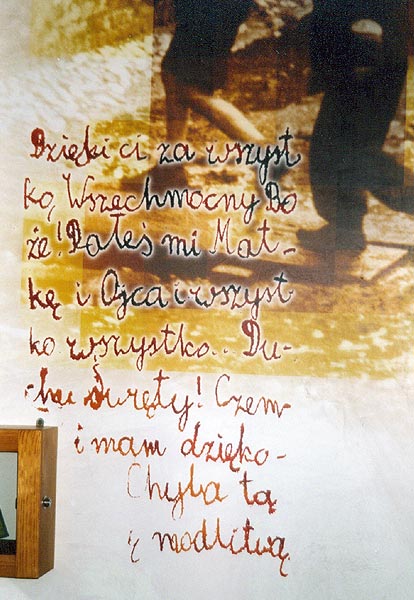 Dzięki ci za wszyst
ko, Wszechmocny Bo
że! Dałeś mi Mat-
kę i Ojca i wszyst
ko wszystko.. Du-
chu Święty! Czem-
i mam dzięko-
Chyba tą
modlitwą